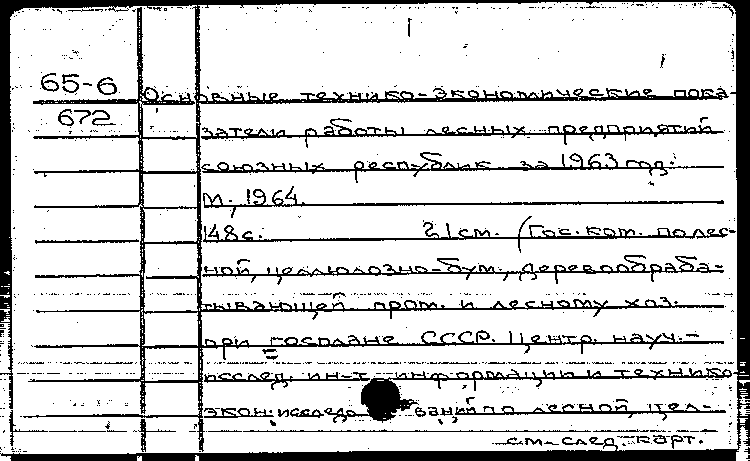 65-6 Основные технико-экономические пока-
672 затели работы лесных предприятий
союзных республик за 1963 год.
М., 1964.
148 с. 21 см. (Гос. ком. по лес-
ной, целлюлозно-бум., деревообраба-
тывающей пром. и лесному хоз.
при госплане СССР. Центр. науч.-
исслед. ин-т информации и технико-
экон. исследований по лесной, цел-
см. след. карт.